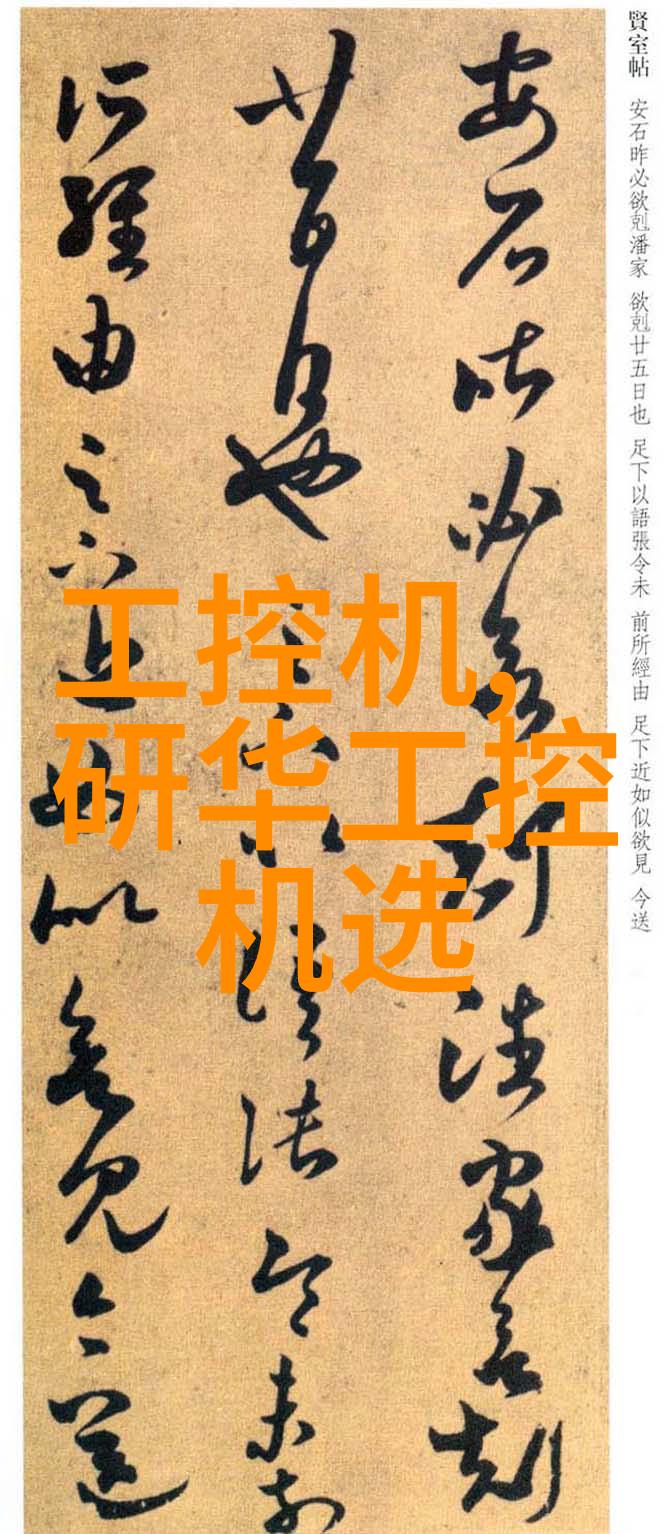 賢室帖 安石昨必欲剋潘家 欲剋廿五日也 足下以語張令未 前所經由 足下近如似欲見 今送
安石昨必欲剋潘家欲剋
廿五日也足下以語張令未前
所經由足下近如似欲見今送
工控机,
研华工控
机选